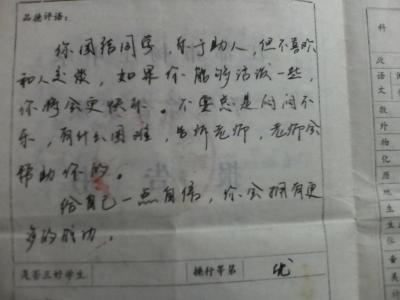 品德评语:
你团结同学,乐于助人,但不喜欢
和人交谈,如果你能够活泼一些,
你将会更快乐。不要总是闷闷不
乐,有什么困难,告诉老师,老师会
帮助你的。
给自己一点自信,你会拥有更
多的胜力。
是否三好学生 操行等第 优
科
政
语
文
数
外
物
化
历
地
生
生
音
美